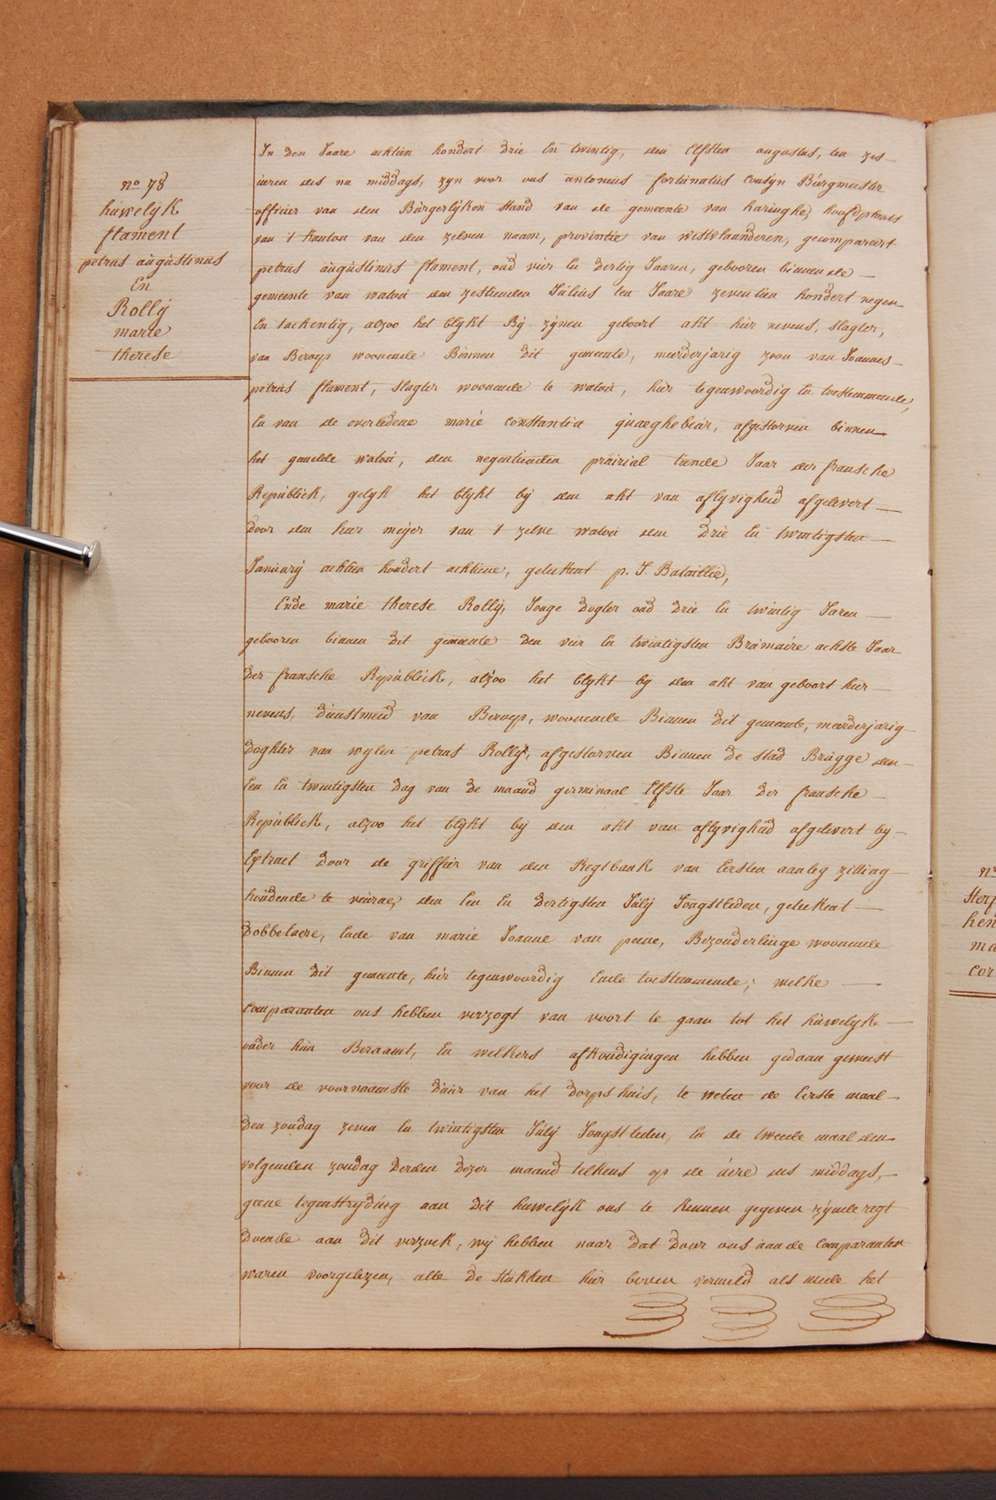 no 78
huwelÿk
flament
petrus augustinus
En
Rollÿ
marie
therese
In den Jaare achtien hondert drie En twintig, den Elfsten augustus, ten zes
uuren des na middags, zyn voor ons antonius fortunatus Cousyn Burgmeester
officier van den Burgerlyken Stand van de gemeente van haringhe, hoofdplaats
van 't kanton van den zelven naam, provintie van westvlaanderen, gecompareert
petrus augustinus flament, oud vier En dertig Jaaren, gebooren binnen de
gemeente van watou den zestienden Julius ten Jaare zeventien hondert negen
En tachentig, alzoo het blykt By zynen geboort akt hier nevens, slagter,
van Beroep woonende Binnen dit gemeente, meerderjarig zoon van Joannes
petrus flament, slagter woonende te watou, hier tegenwoordig En toestemmende,
En van de overledene marie constantia quaeghebeur, afgestorven binnen
het gemelde watou, den negentienden prairial tiende Jaar der fransche
Republick, gelyk het blykt by den akt van aflyvigheid afgelevert
door den heer meijer van 't zelve watou den drie En twintigsten
Januarÿ achtien hondert achtiene, geteekent p. J Bataillie,
Ende marie therese Rollÿ, Jonge dogter oud drie En twintig Jaren
gebooren binnen dit gemeente den vier En twintigsten Brumaire achtste Jaar
der fransche Republick, alzoo het blykt by den akt van geboort hier
nevens, dienstmeid van Beroep, woonende Binnen dit gemeente, meerderjarig
doghter van wylen petrus Rollÿ, afgestorven Binnen de stad Brugge den
Een En twintigsten dag van de maand germinaal Elfste Jaar der fransche
Republick, alzoo het blykt by den akt van aflyvighud afgelevert by
Extract door de griffier van den Regtbank van Eersten aanleg zitting
houdende te veurne, den Een En dertigsten Julÿ Jongstleden, geteekent
Dobbelaere, Ende van marie Joanne van peene, Bezonderlinge woonende
Binnen dit gemeente, hier tegenwoordig Ende toestemmende; welke
Comparanten ons hebben verzogt van voort te gaan tot het huwelyk
onder hun Beraamt, En welkers afkondigingen hebben gedaan geweest
voor de voornaamste duur van het dorps huis, te weten de Eerste maal
den zondag zeven En twintigsten Julÿ Jongstleden, En de tweede maal den
volgenden zondag derden dezer maand telkens op de uire des middags,
geene tegenstryding aan dit huwelyk ons te kennen gegeven zynde regt
doende aan dit verzoek, wij hebben naar dat door ons aan de Comparanten
waren voorgelezen, alle de stukken hier boven vermeld als mede het